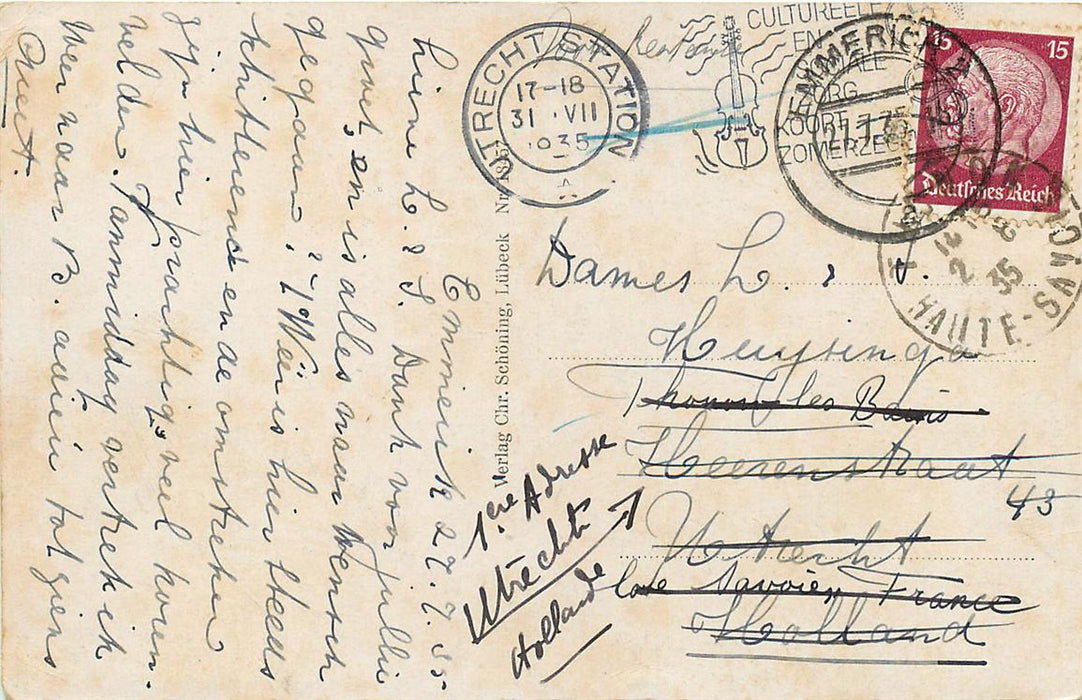 Emmerich 27.7.35
Lieve L. & S. Dank voor jullie
groet, en is alles naar wensch
gegaan? 't Weer is hier steeds
schitterend en de omstreken
zijn hier prachtig, veel koren-
velden. Vanmiddag vertrek ik
weer naar B. adieu tot ziens
Verlag Chr. Schöning, Lübeck Nr.
UTRECHT STATION
17-18
31 VII
1935
CULTUREELE
EN
KOORT
EMMERICH
A
15 15
Deutsches Reich
HAUTE-SAVOIE
2
35
Dames L. & S.
Huysinga
Thonon les Bains
Heerenstraat
43
Utrecht
Savoie, France
Holland
1ère Adresse
Utrecht
Hollande